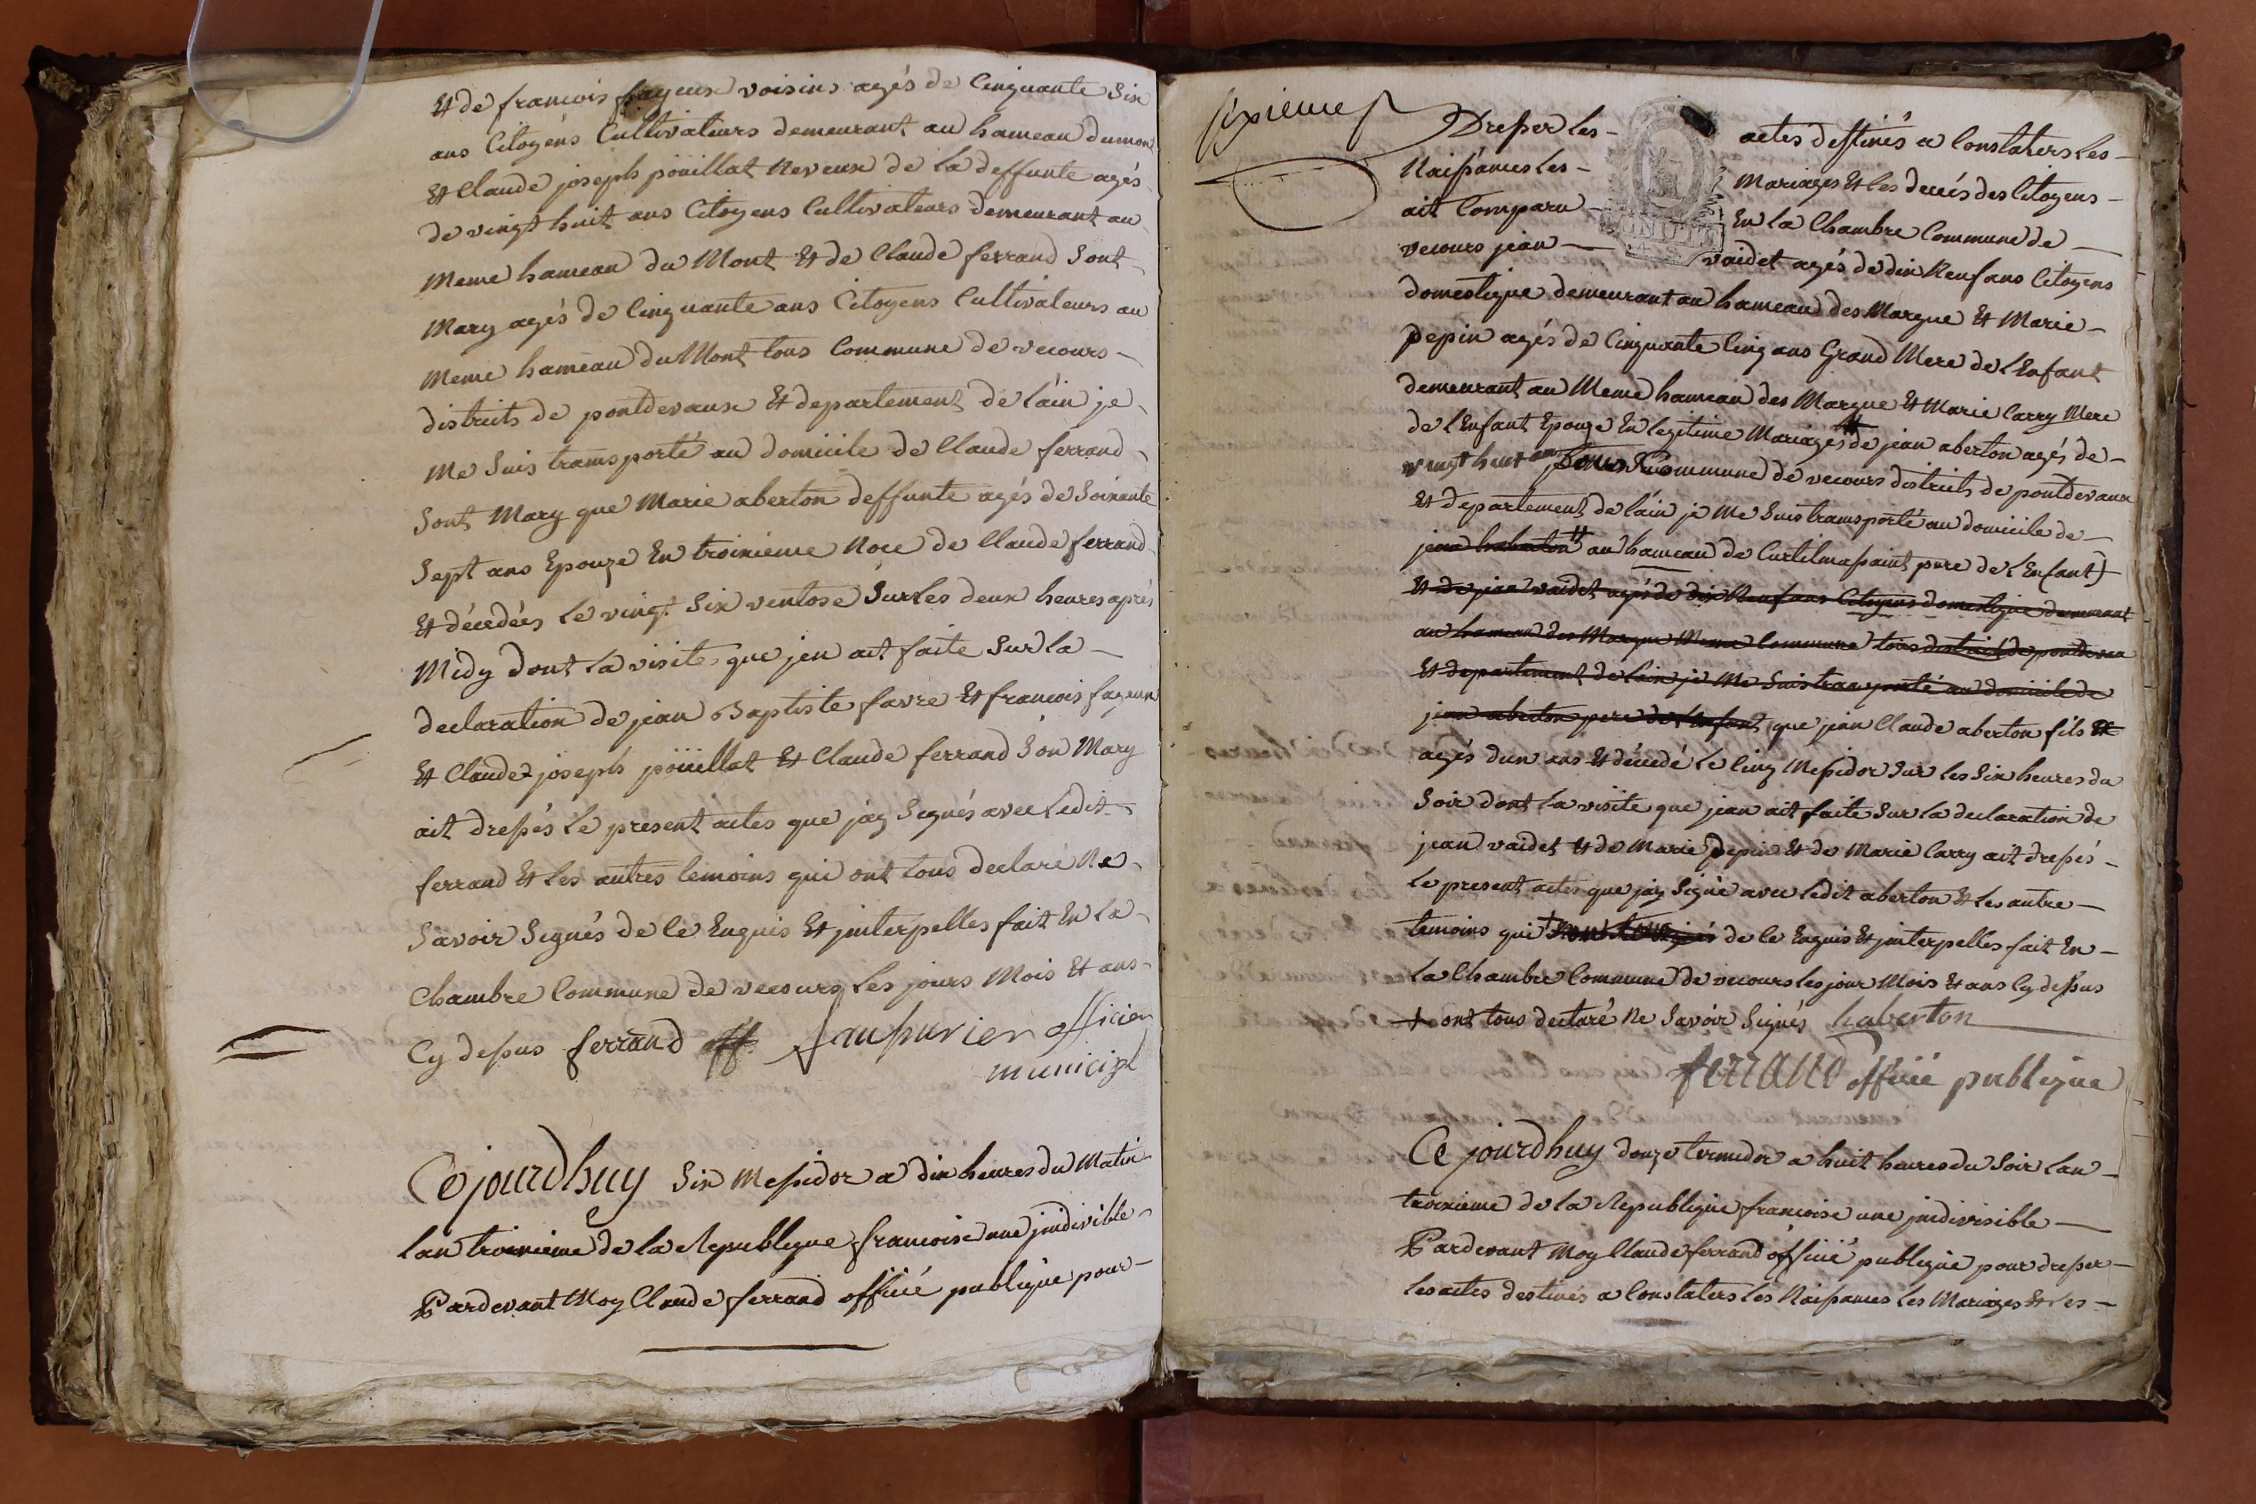 Et de francois fayeux voisins agés de Cinquante Six
ans Citoyens Cultivateurs demeurant au hameau du mont
Et Claude joseph poüillat Neveux de la deffunte agés
de vingt huit ans Citoyens Cultivateurs demeurant au
Meme hameau du Mont Et de Claude ferrand Sont
Mary agés de Cinquante ans Citoyens Cultivateurs au
Meme hameau du Mont tous Commune de vecours
districts de pontdevaux Et departement de láin je
Me Suis transporté au domicile de Claude ferrand
Sont Mary que Marie aberton deffunte agés de Soixante
Sept ans Epouze En troixieme Noce de Claude ferrand
Et décédés le vingt Six ventose Sur les deux heures aprés
Midy dont la visite que jen ait faite Sur la
declaration de jean Baptiste favre Et francois fayeux
Et Claude joseph poüillat Et Claude ferrand Son Mary
ait dressés le present actes que jay Signés avec ledit
ferrand Et les autres temoins qui ont tous declaré Ne
Savoir Signés de ce Enquis Et jnterpelles fait En la
Chambre Commune de vecours les jours Mois Et ans
Cy dessus ferrand officier
municipl
Cejourdhuy Six Messidor a dix heures du Matin
lan troixieme de la Republique francoise une jndivible
Pardevant Moy Claude ferrand officié publique pour
sixieme
Dresser les actes destinés a Constaters les
Naissances les Mariages Et les decés des Citoyens
ait Comparu En la Chambre Commune de
vecours jean vaidet agés de dix Neuf ans Citoyens
domestique demeurant au hameau des Margue Et Marie
pepin agés de Cinquante Cinq ans Grand Mere de lEnfant
demeurant au Meme hameau des Margue Et Marie Carry Mere
de lEnfant Epouze En legitime Mariages de jean aberton agés de
vingt huit ans Commune de vecours districts de pontdevaux
Et departement de láin je Me Suis transporté au domicile de
jean haberton au hameau de Curtilmassaint pere de lEnfant
Et de jean vaidet agés de dix Neuf ans Citoyens domestique demeurant
au hameau des Margue Meme Commune tous district de pontdevau
Et departement de lain je Me Suis transporté au domicile de
jean aberton pere de lEnfant que jean Claude aberton fils Et
agés dun ans Et décédé le Cinq Messidor Sur les Six heures du
Soir dont la visite que jean ait faite Sur la declaration de
jean vaidet Et de Marie pepin Et de Marie Carry ait dressés
le present actes que jay Signé avec ledit aberton Et les autre
temoins qui de ce Enquis Et jnterpelles fait En
la Chambre Commune de vecours les jour Mois Et ans Cy dessus
+ ont tous declaré Ne Savoir Signés haberton
ferrand officié publique
Ce jourdhuy douze termidor a huit heures du Soir lan
troixieme de la Republique francoise une jndivisible
Pardevant Moy Claude ferrand officié publique pour dresser
les actes destinés a Constaters les Naissances les Mariages Et les